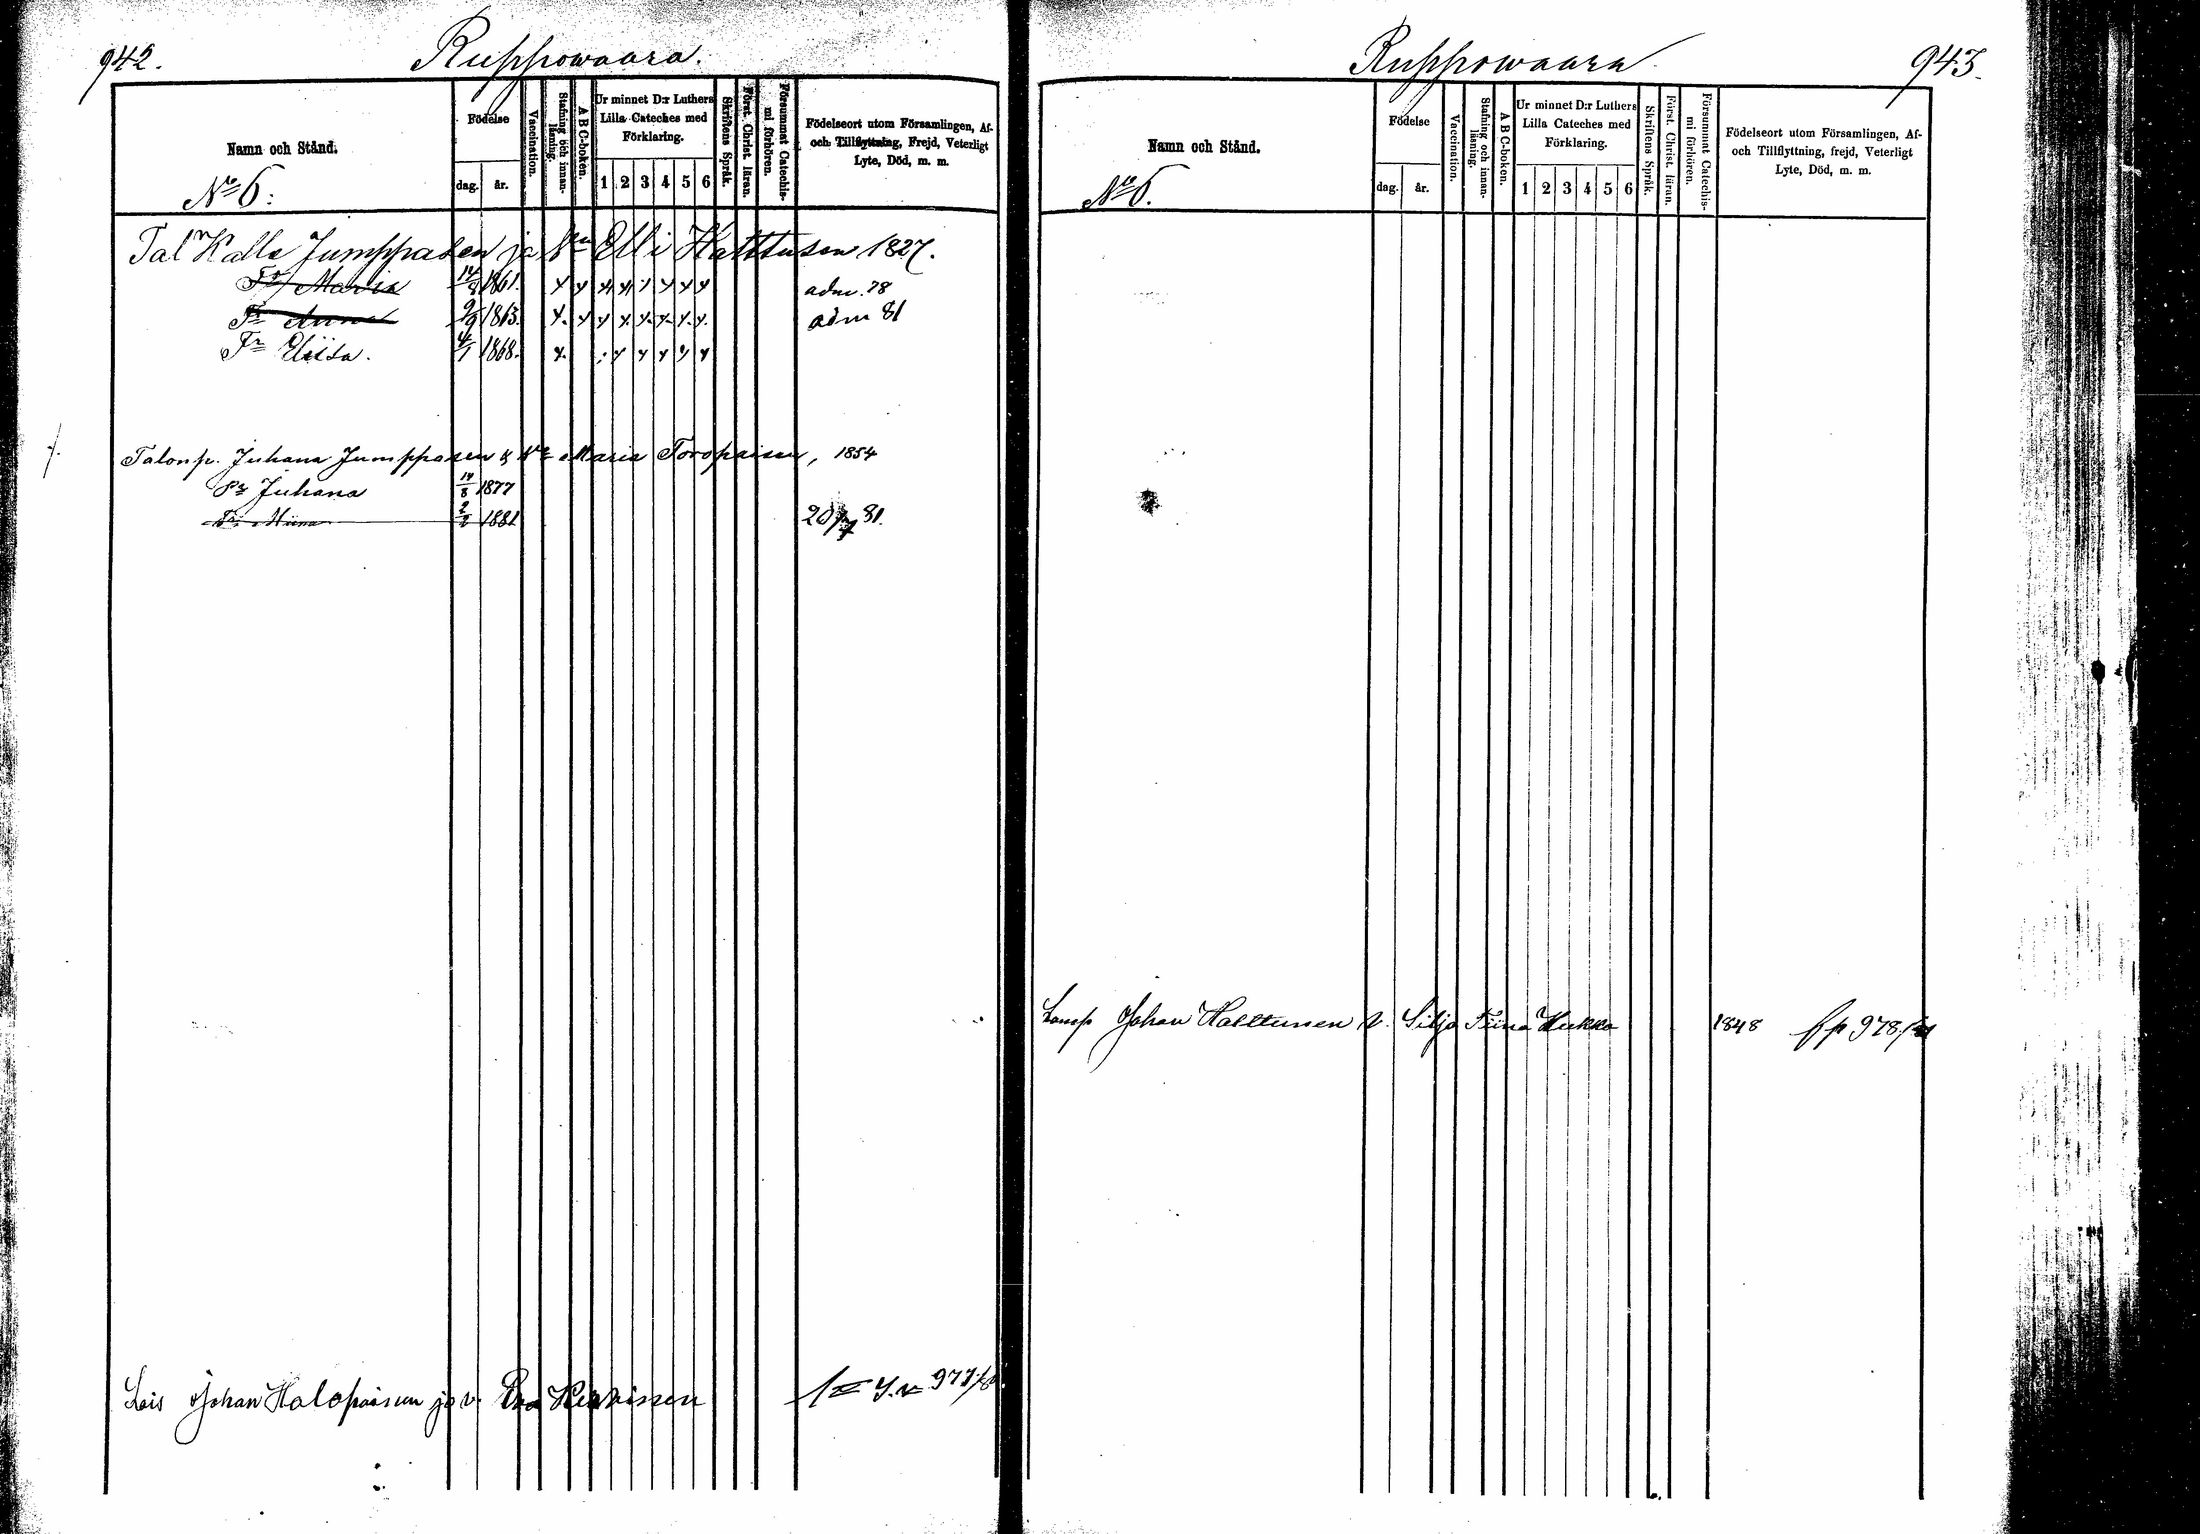 942.
Ruppowaara.
Namn och Stånd.
No 6:
Födelse
dag.
år.
Vaccination.
Stafning och innan-
läsning.
A B C-boken.
Ur minnet D:r Luthers
Lilla Cateches med
Förklaring.
1 2 3 4 5 6
Skriftens Språk.
Först. Christ. läran.
Försummat Catechis-
mi förhören.
Födelseort utom Församlingen, Af-
och Tillflyttning, Frejd, Veterligt
Lyte, Död, m. m.
Tal Kalle Jumppasen ja Elli Halttusen 1827.
Tr Maria 14/8 1861. adm. 78
Tr Anna 9/9 1863. adm 81
Tr Eliisa. 4/1 1868.
Talonp. Juhana Jumppasen & Vr Maria Toropaisen, 1854
Pr Juhana 14/8 1877
Tr Miina 2/2 1881 20/7 81.
Lois Johan Halopaisen ja v. Eva
943.
Ruppowaara
Namn och Stånd.
No 6.
Födelse
dag.
år.
Vaccination.
Stafning och innan-
läsning.
A B C-boken.
Ur minnet D:r Luthers
Lilla Cateches med
Förklaring.
1 2 3 4 5 6
Skriftens Språk.
Först. Christ. läran.
Försummat Catechis-
mi förhören.
Födelseort utom Församlingen, Af-
och Tillflyttning, frejd, Veterligt
Lyte, Död, m. m.
Lamp Johan Halttunen v. Silja Tiina Hukka 1848